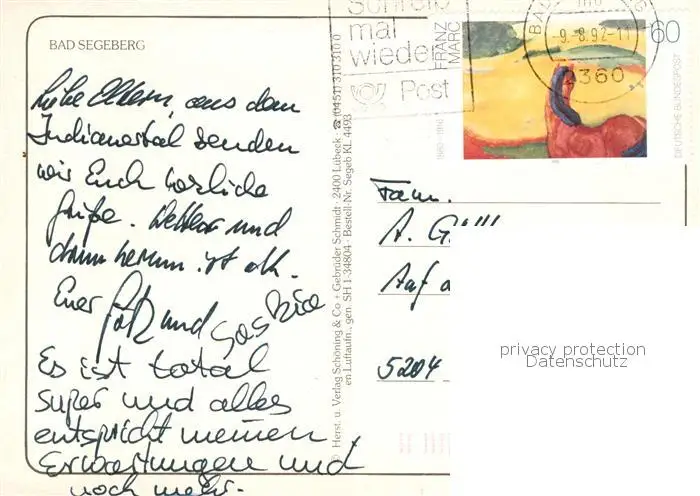 BAD SEGEBERG
Liebe Eltern, aus dem
Indianertal senden
wir Euch herzliche
Grüße. Wetter und
drum herum ist ok.
Euer Götz und
Es ist total
super und alles
entspricht meinen
Erwartungen und
noch mehr.
© Herst. u. Verlag Schöning & Co + Gebrüder Schmidt · 2400 Lübeck · ☎ (0451) 310 310 0
en Luftaufn., gen. SH 1-34804 · Bestell-Nr. Segeb KL 4493
Schreib
mal
wieder
Post
FRANZ
MARC
1880-1916
60
DEUTSCHE BUNDESPOST
-9.-8.92-11
2360
Fam.
A.
Auf
5204
privacy protection
Datenschutz